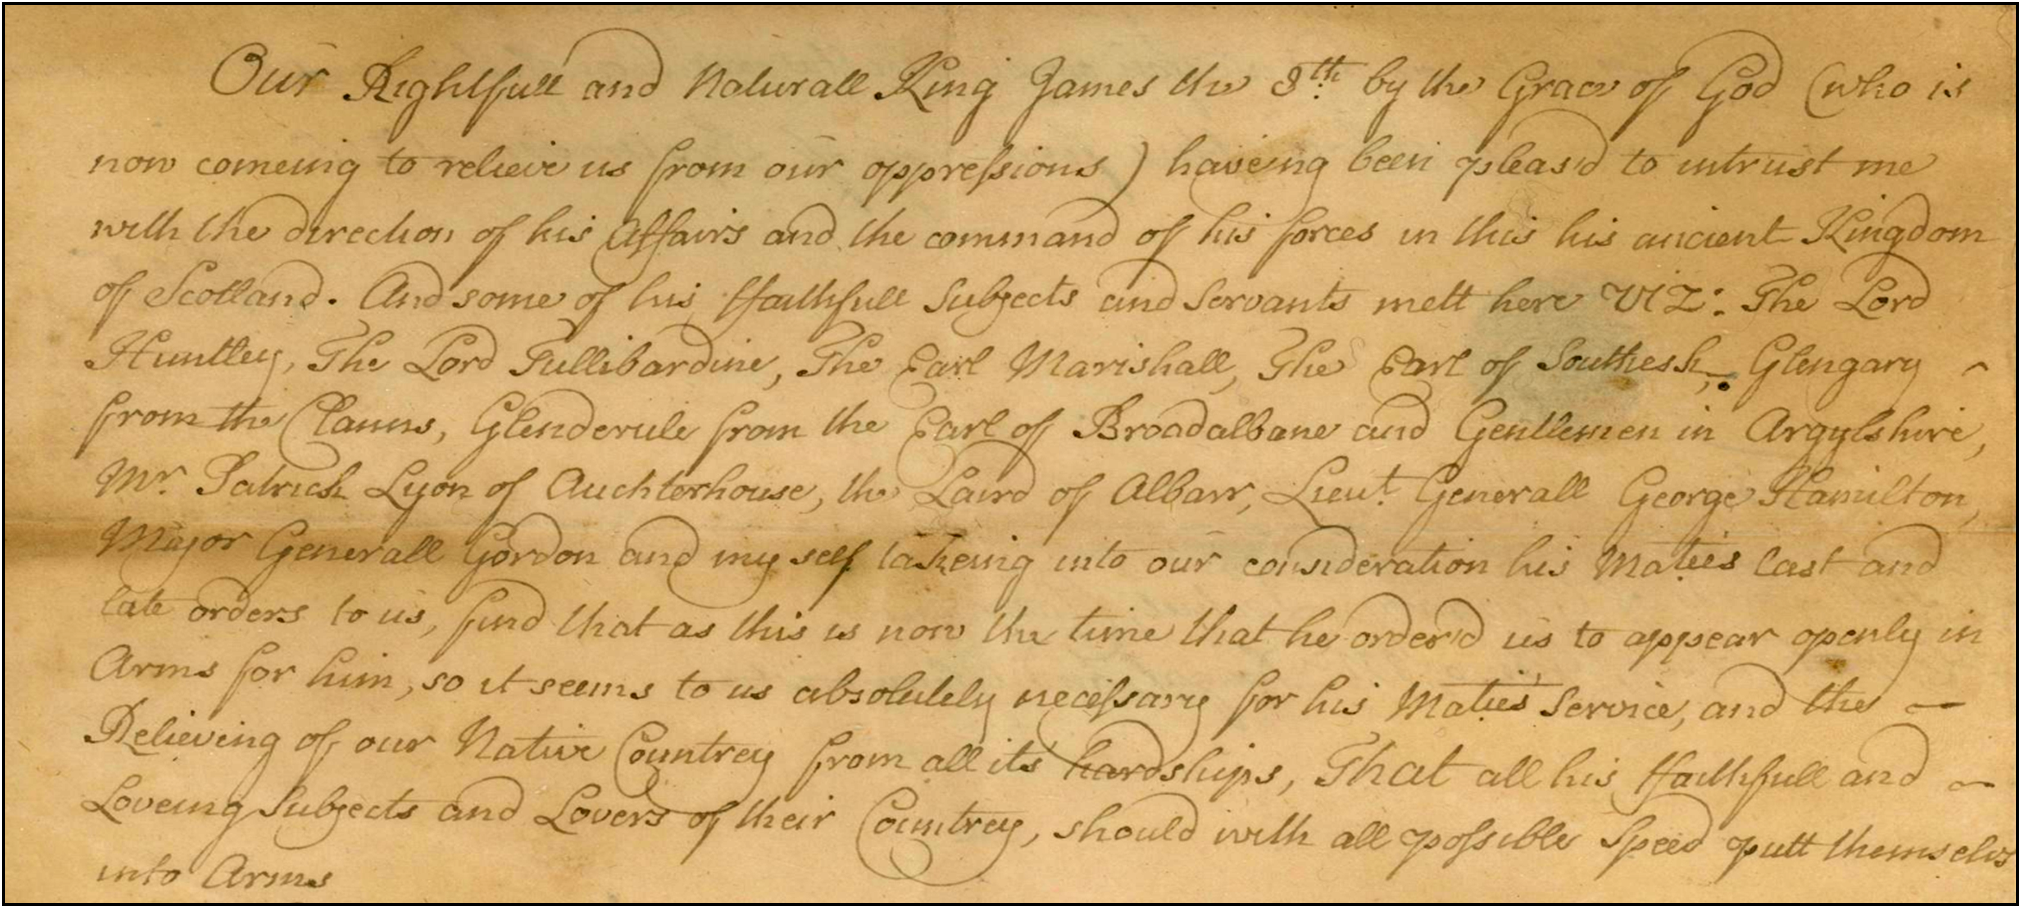 Our Rightfull and Naturall King James the 8th by the Grace of God (who is
now comeing to relieve us from our oppressions) haveing been pleas'd to intrust me
with the direction of his Affairs and the command of his forces in this his ancient Kingdom
of Scotland. And some of his ffaithfull Subjects and Servants mett here VIZ: The Lord
Huntley, The Lord Tullibardine, The Earl Marishall, The Earl of Southesk, Glengary
from the Clanns, Glenderule from the Earl of Broadalbane and Gentlemen in Argylshire,
Mr. Patrick Lyon of Auchterhouse, the Laird of Albarr, Lieut. Generall George Hamilton,
Major Generall Gordon and my self takeing into our consideration his Maties last and
late orders to us, find that as this is now the time that he order'd us to appear openly in
Arms for him, so it seems to us absolutely necessary for his Maties Service, and the —
Relieving of our Native Countrey from all its hardships, That all his ffaithfull and —
Loveing Subjects and Lovers of their Countrey, should with all possible Speed putt themselvs
into Arms